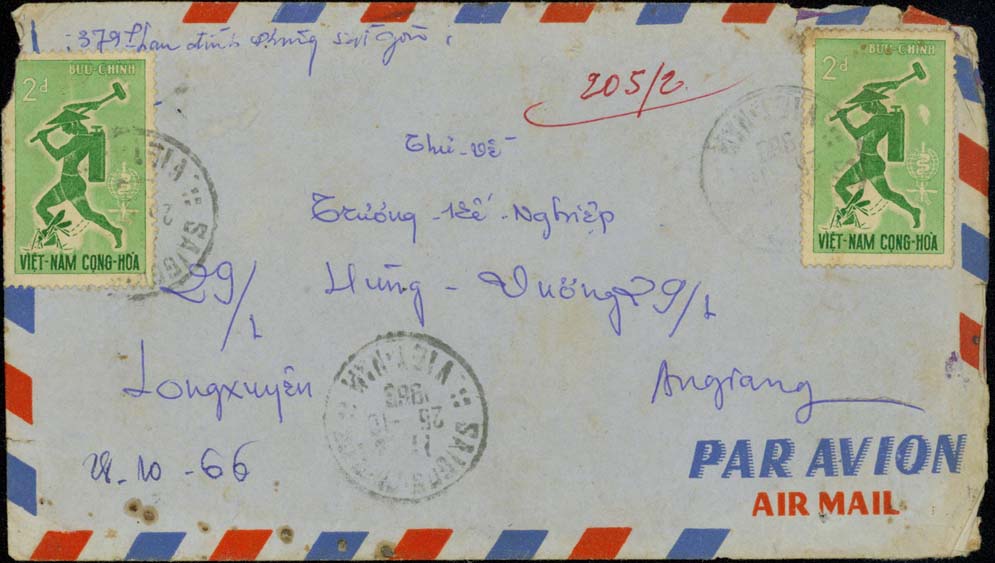 379 Phan đình Phùng Sài gòn
BƯU-CHÍNH
2đ
VIỆT-NAM CỘNG-HÒA
BƯU-CHÍNH
2đ
VIỆT-NAM CỘNG-HÒA
205/2
Trương-Kế-Nghiệp
29/1 Hùng-Vương 29/1
Longxuyên Angiang
VIET-NAM
25-10
1966
28-10-66
PAR AVION
AIR MAIL